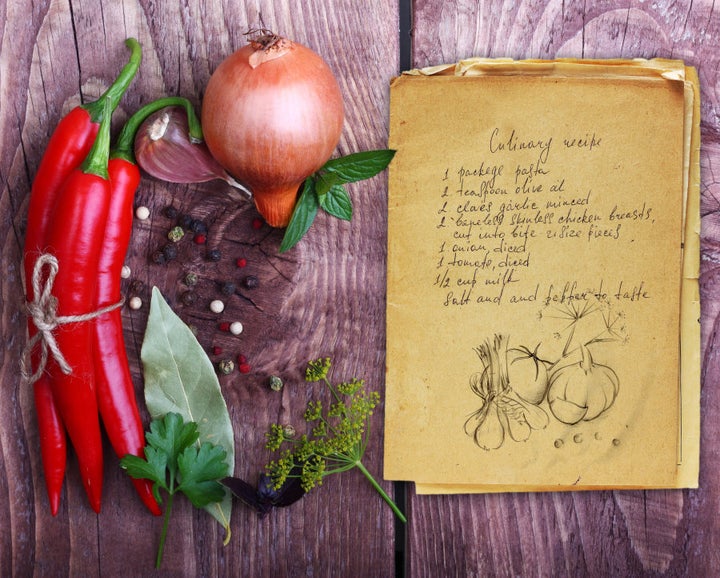 Culinary recipe
1 packege pasta
2 teaspoon olive oil
2 claes garlic minced
2 baneless skinless chicken breasts,
cut into bite-size pieces
1 onian, diced
1 tomato, diced
1/2 cup milk
Salt and and pepper to taste